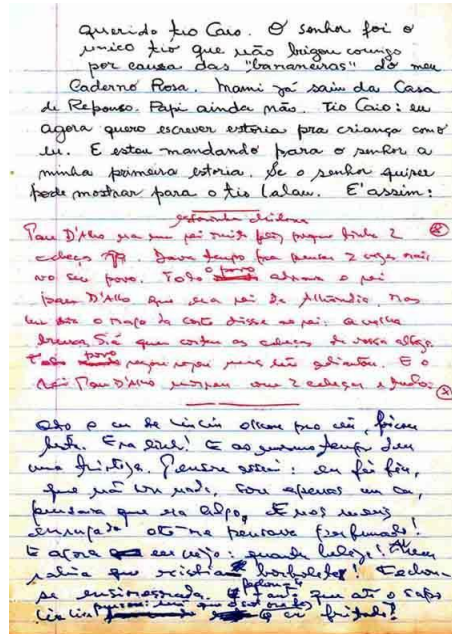 querido tio Caio. O senhor foi o
unico tio que não brigou comigo
por causa das "bananeiras" do meu
Caderno Rosa. Mami já saiu da Casa
de Repouso. Papi ainda não. Tio Caio: eu
agora quero escrever estoria pra criança como
eu. E estou mandando para o senhor a
minha primeira estoria. Se o senhor quiser
pode mostrar para o tio Lalau. E' assim:
D'Alho era um rei muito feliz porque tinha 2
cabeças. Dava tempo pra pensar 2 vezes mais
no seu povo. Todo o povo adorava o rei
D'Alho que era rei de
um dia o mago da corte disse ao rei: a
bruxa que cortem as cabeças de vossa alteza.
Todo povo rezou rezou mas não adiantou. E o
D'Alho com 2 cabeças e tudo.
olhou pro céu, ficou
E ao mesmo tempo deu
uma tristeza. Pensou assim: eu fui
que não sou nada, sou apenas um cu,
pensava que era algo. E nos meus
até me pensava perfumado!
E agora eu vejo: quanta beleza!
sabia que existia borboleta! Fechou-
se ensimesmado. E tanto que até o sapo